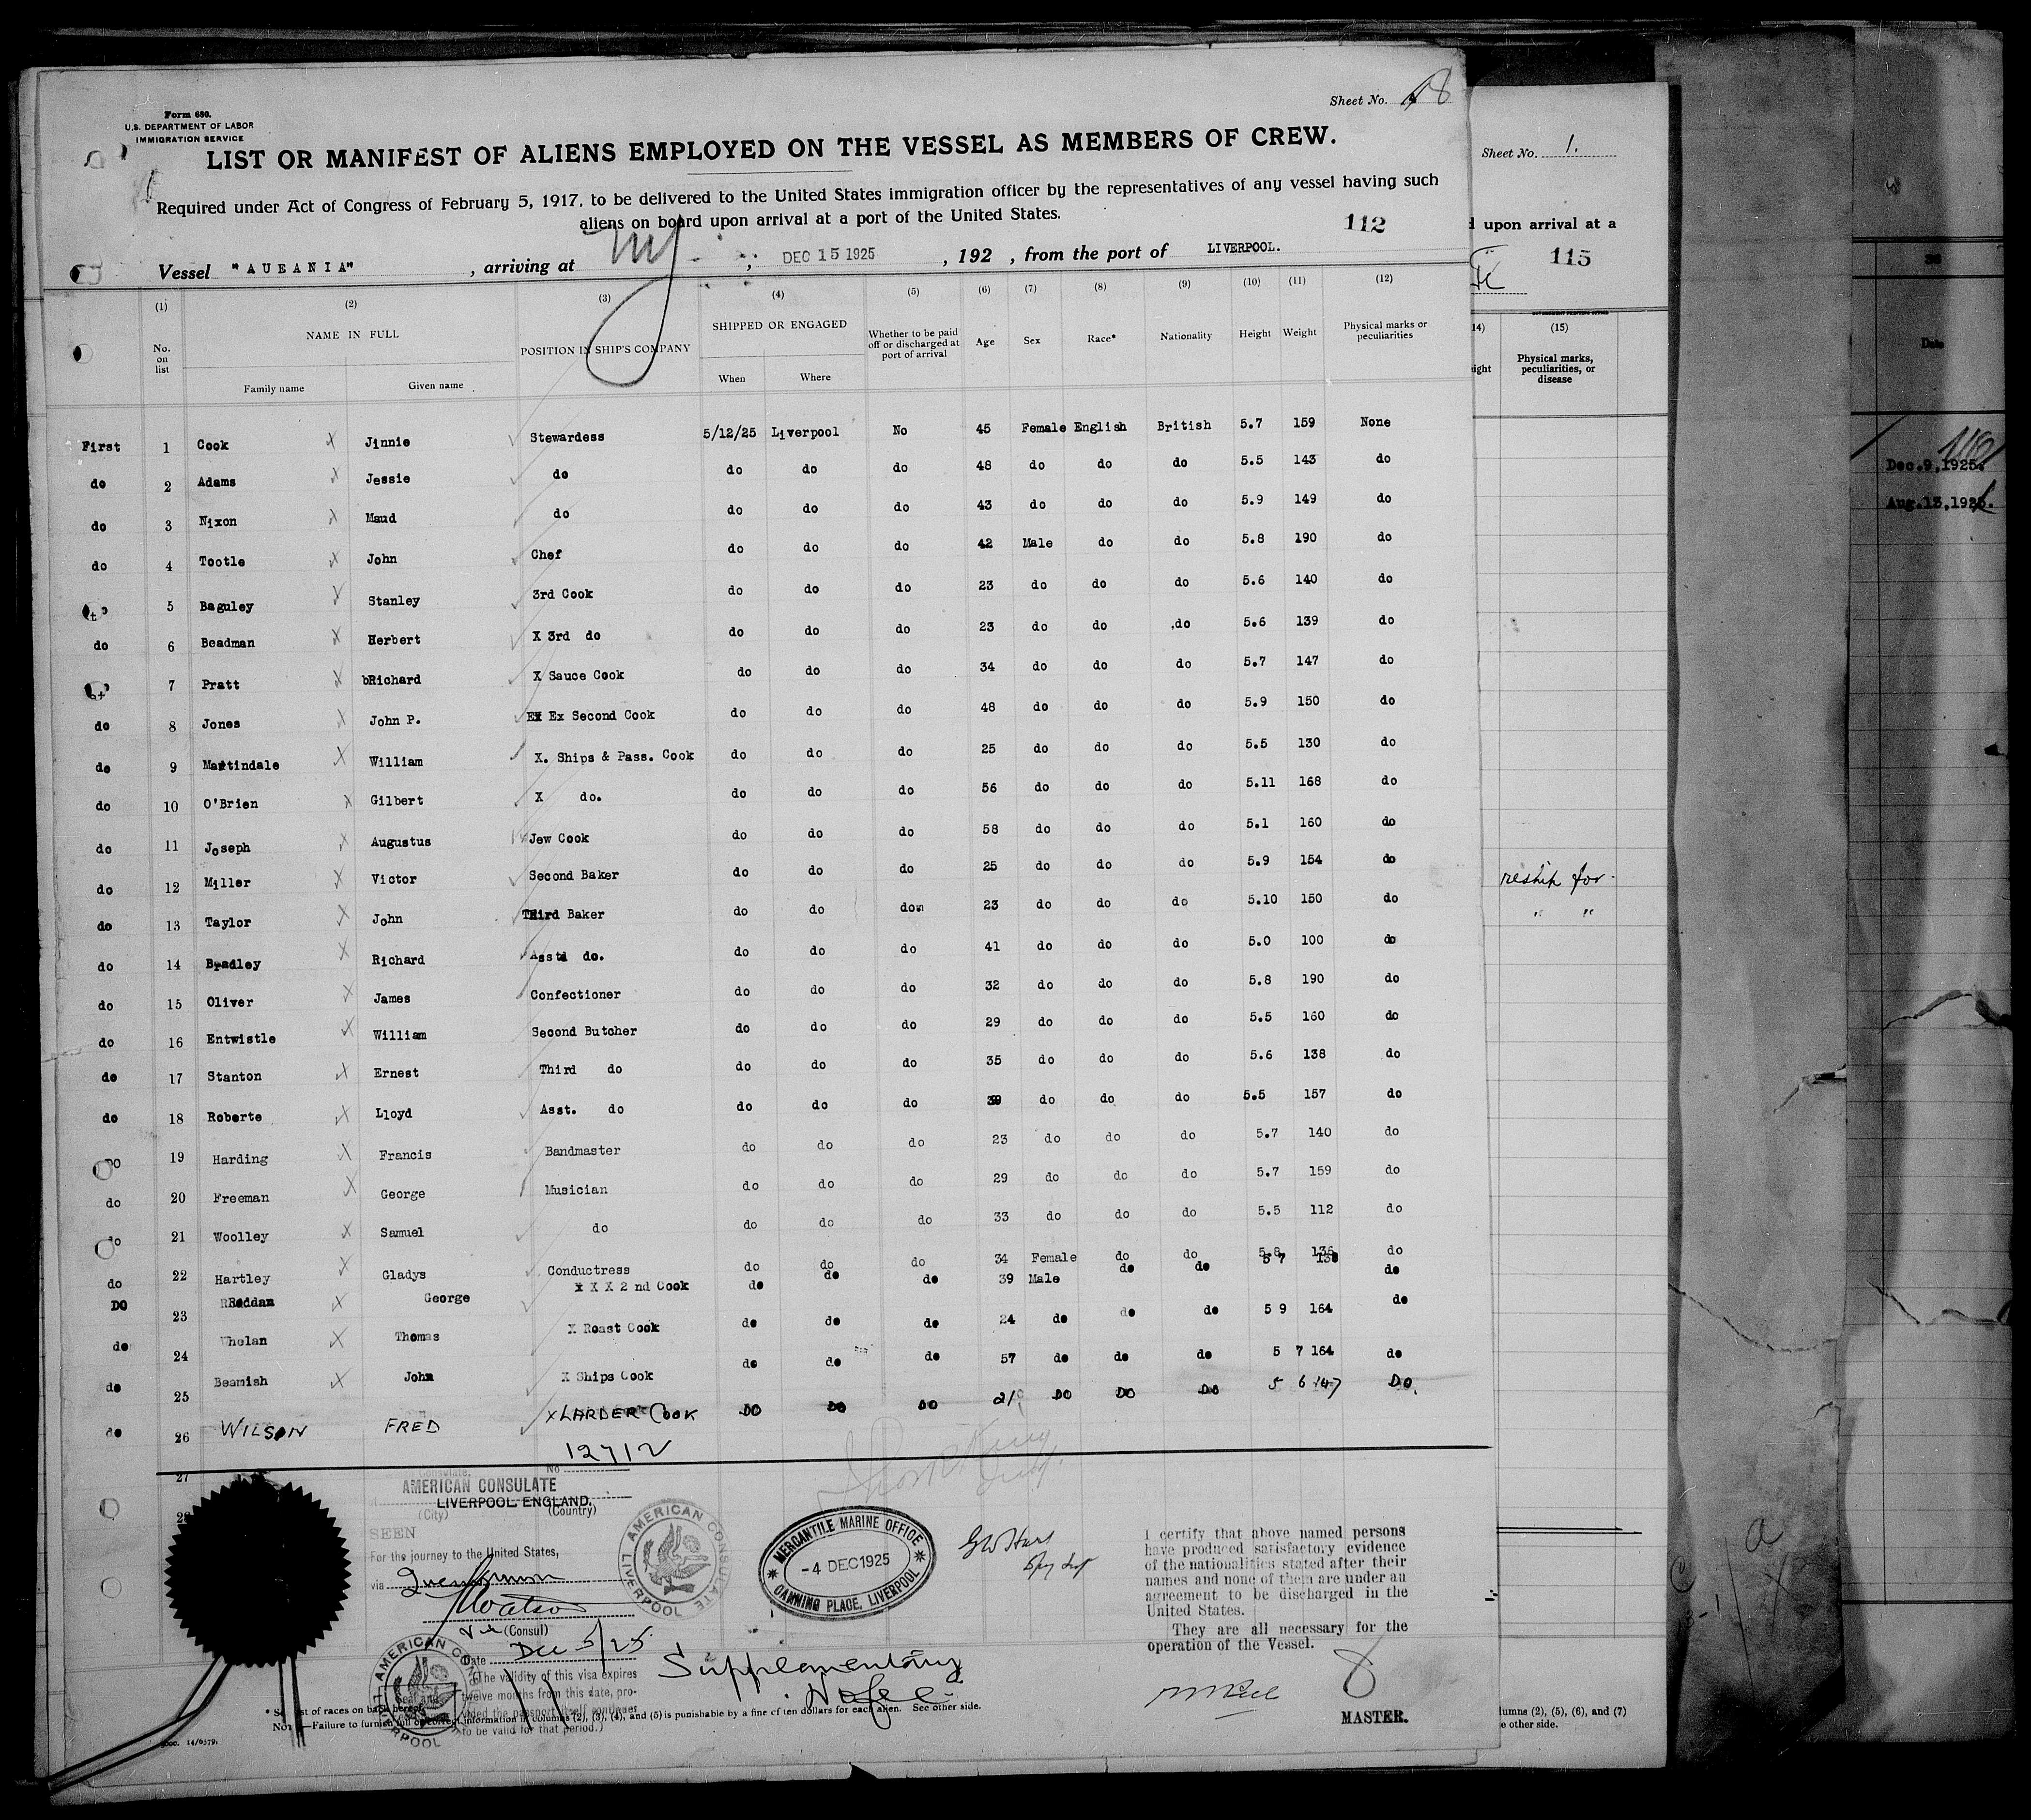 Sheet No. 18
Form 680.
U.S. DEPARTMENT OF LABOR
IMMIGRATION SERVICE
LIST OR MANIFEST OF ALIENS EMPLOYED ON THE VESSEL AS MEMBERS OF CREW.
Required under Act of Congress of February 5, 1917, to be delivered to the United States immigration officer by the representatives of any vessel having such
aliens on board upon arrival at a port of the United States.
112
Vessel "AURANIA", arriving at NY, DEC 15 1925, 192 , from the port of LIVERPOOL.
(1) (2) (3) (4) (5) (6) (7) (8) (9) (10) (11) (12)
No. on list NAME IN FULL POSITION IN SHIP'S COMPANY SHIPPED OR ENGAGED Whether to be paid off or discharged at port of arrival Age Sex Race* Nationality Height Weight Physical marks or peculiarities
Family name Given name When Where
First 1 Cook Jinnie Stewardess 5/12/25 Liverpool No 45 Female English British 5.7 159 None
do 2 Adams Jessie do do do do 48 do do do 5.5 143 do
do 3 Nixon Maud do do do do 43 do do do 5.9 149 do
do 4 Tootle John Chef do do do 42 Male do do 5.8 190 do
5 Baguley Stanley 3rd Cook do do do 23 do do do 5.6 140 do
do 6 Beadman Herbert X 3rd do do do do 23 do do do 5.6 139 do
7 Pratt bRichard X Sauce Cook do do do 34 do do do 5.7 147 do
do 8 Jones John P. Ex Ex Second Cook do do do 48 do do do 5.9 150 do
do 9 Martindale William X. Ships & Pass. Cook do do do 25 do do do 5.5 130 do
do 10 O'Brien Gilbert X do. do do do 56 do do do 5.11 168 do
do 11 Joseph Augustus Jew Cook do do do 58 do do do 5.1 160 do
do 12 Miller Victor Second Baker do do do 25 do do do 5.9 154 do
do 13 Taylor John Third Baker do do do 23 do do do 5.10 150 do
do 14 Bradley Richard Asstd do. do do do 41 do do do 5.0 100 do
do 15 Oliver James Confectioner do do do 32 do do do 5.8 190 do
do 16 Entwistle William Second Butcher do do do 29 do do do 5.5 160 do
do 17 Stanton Ernest Third do do do do 35 do do do 5.6 138 do
do 18 Roberts Lloyd Asst. do do do do 39 do do do 5.5 157 do
DO 19 Harding Francis Bandmaster do do do 23 do do do 5.7 140 do
do 20 Freeman George Musician do do do 29 do do do 5.7 159 do
do 21 Woolley Samuel do do do do 33 do do do 5.5 112 do
do 22 Hartley Gladys Conductress do do do 34 Female do do 5.8 136 do
DO 23 Reddan George X X X 2 nd Cook do do do 39 Male do do 5 7 138 do
do 24 Whelan Thomas X Roast Cook do do do 24 do do do 5 9 164 do
do 25 Beamish John X Ships Cook do do do 57 do do do 5 7 164 do
do 26 WILSON FRED X LARDER COOK DO DO DO 21 DO DO DO 5 6 147 DO.
27
No 12712
AMERICAN CONSULATE
LIVERPOOL ENGLAND.
(City) (Country)
SEEN
For the journey to the United States,
via Queenstown
(Consul)
Date Dec 5/25
(The validity of this visa expires
twelve months from this date, pro-
vided the passport itself continues
to be valid for that period.)
AMERICAN CONSULATE LIVERPOOL
AMERICAN CONSULATE LIVERPOOL
MERCANTILE MARINE OFFICE
-4 DEC 1925
CANNING PLACE, LIVERPOOL
Supplementary
No fee
I certify that above named persons
have produced satisfactory evidence
of the nationalities stated after their
names and none of them are under an
agreement to be discharged in the
United States.
They are all necessary for the
operation of the Vessel.
MASTER.
* See list of races on back hereof.
NOTE—Failure to furnish full or correct information in columns (2), (3), (4), and (5) is punishable by a fine of ten dollars for each alien. See other side.
14/6579.
Sheet No. 1.
upon arrival at a
115
14) (15)
Physical marks, peculiarities, or disease
reship for
" "
lumns (2), (5), (6), and (7)
e other side.
Date
Dec.9,1925.
Aug.13,1925.